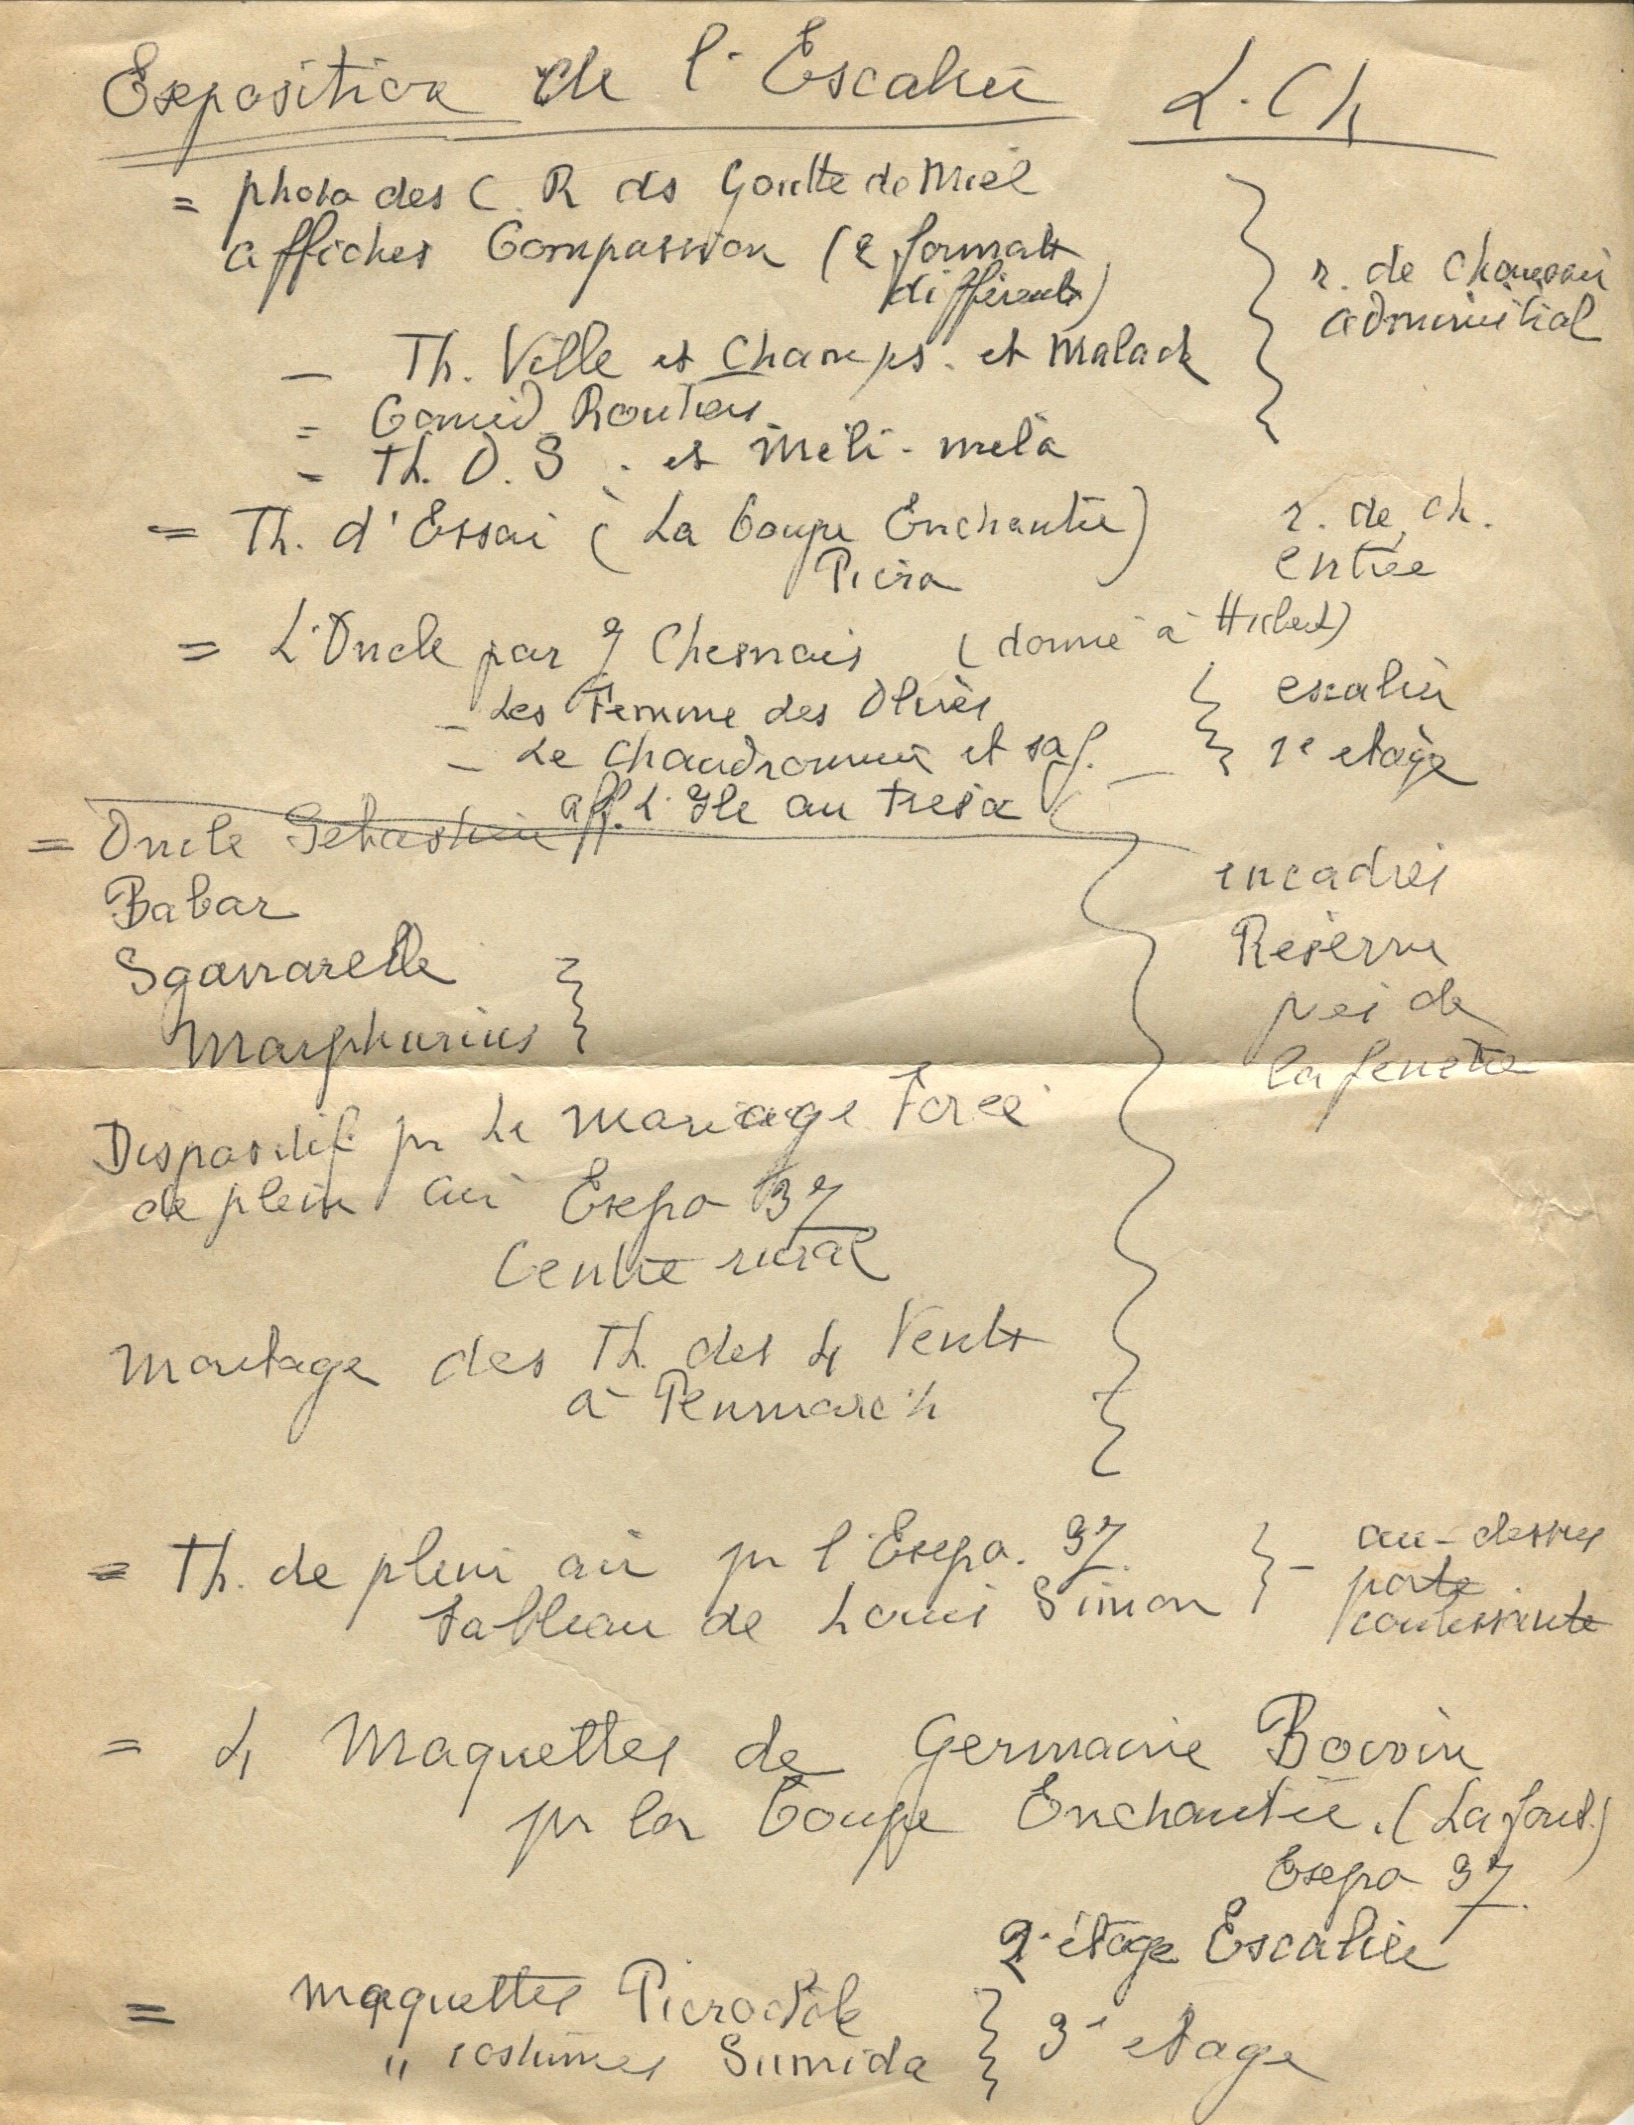 Exposition de l'Escalier L. Ch
= photo des C. R ds Goutte de Miel
affiches Compassion (2 formats
différents)
r. de Chaussée
administrat
— Th. Ville et Champs. et Malack
= Coméd Routiers
= Th. O. S. et Méli-mélo
= Th. d'Essai (La Coupe Enchantée)
Picra
r. de ch.
entrée
= L'Oncle par J Chesnais (donné à Hubert)
= Les Femme des Oliviers
= Le Chaudronnier et sa f.
escalier
1e etage
aff. L'Ile au tresor
= Oncle Sébastien
Babar
Sganarelle
Marphurius
encadrés
Réserve
près de
la fenetre
Dispositif pr Le Mariage Forcé
de plein air Expo 37
Centre rural
Montage des Th. des 4 Vents
à Penmarc'h
= Th. de plein air pr l'Expo. 37.
tableau de Louis Simon
— au-dessus
porte
coulissante
= 4 Maquettes de Germaine Boivin
pr la Coupe Enchantée. (La font.)
Expo 37.
2e étage Escalier
= maquettes Picrochole
" costumes Sumida
3e etage